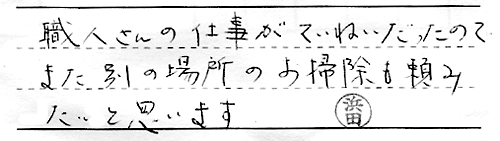 職人さんの仕事がていねいだったので
また別の場所のお掃除も頼み
たいと思います
浜田